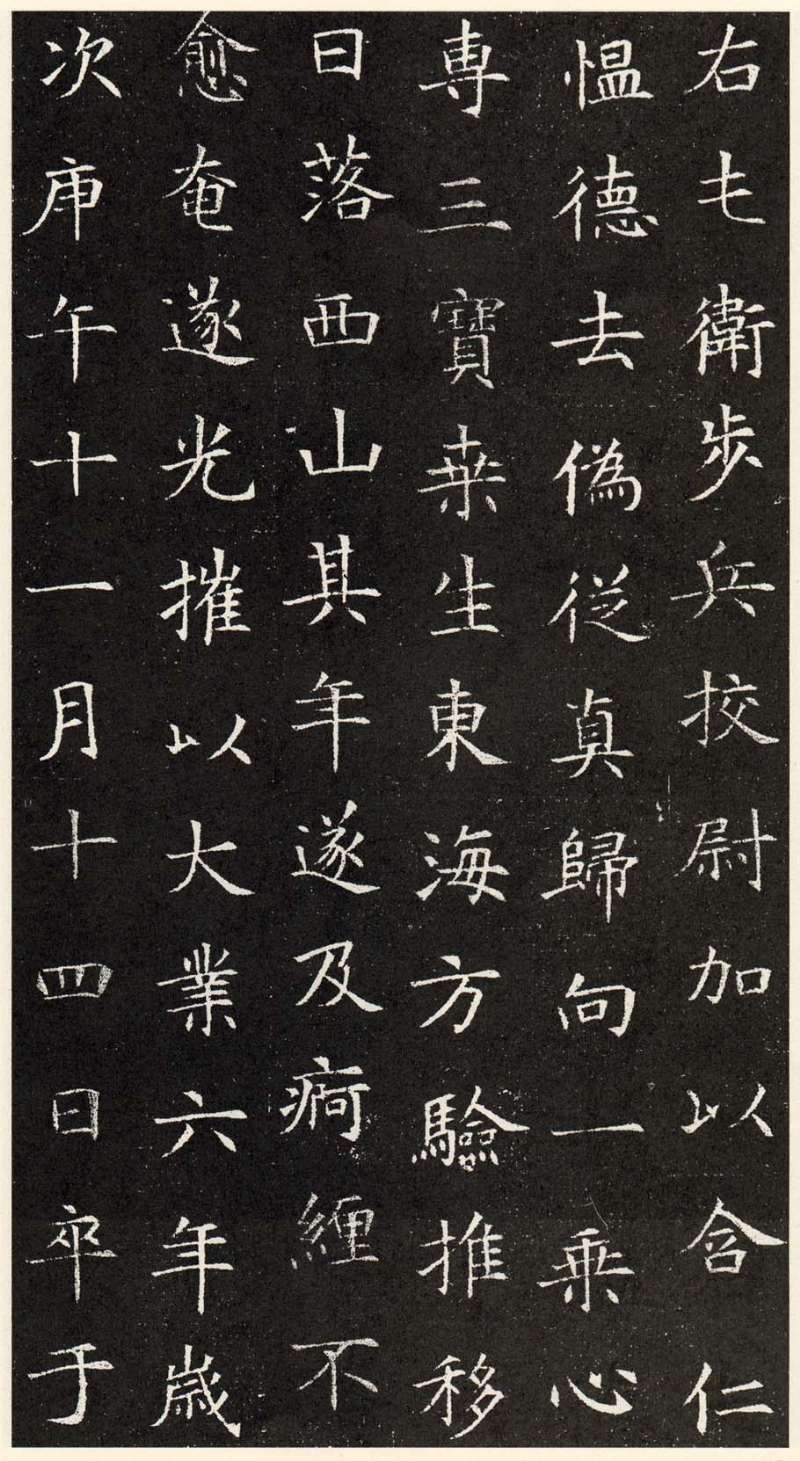 右屯衛步兵挍尉加以含仁
愠德去偽從真歸向一乗心
専三寶桒生東海方驗推移
日落西山其年遂及痾纏不
愈奄遂光摧以大業六年歲
次庚午十一月十四日卒于